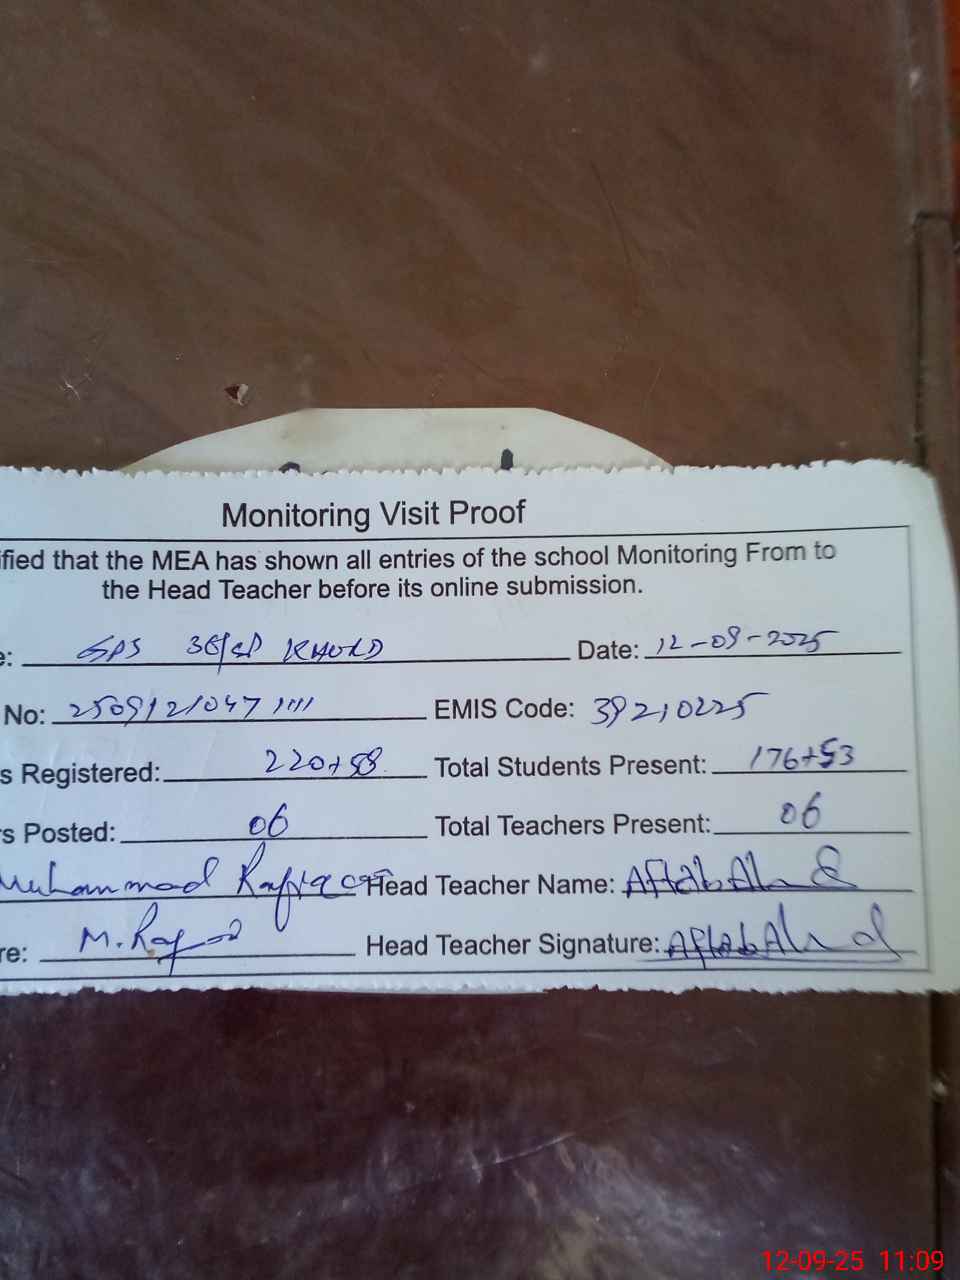 Monitoring Visit Proof
ified that the MEA has shown all entries of the school Monitoring From to
the Head Teacher before its online submission.
e: GPS 38/SP KHURD Date: 12-09-2025
No: 250912104711111 EMIS Code: 39210225
s Registered: 220+58 Total Students Present: 176+53
rs Posted: 06 Total Teachers Present: 06
Muhammad Head Teacher Name: Aftab
re: M. Head Teacher Signature: Aftab
12-09-25 11:09